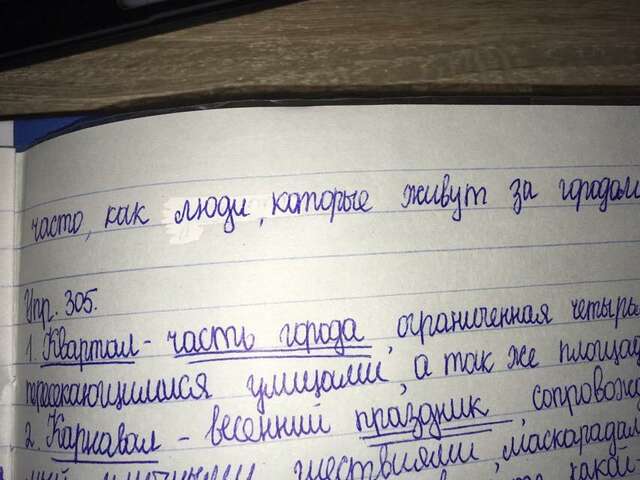 часто, как люди, которые живут за городом
Упр. 305.
1. Квартал - часть города, ограниченная четырь
пересекающимися улицами, а так же площад
2. Карнавал - весенний праздник, сопровожда
шествиями, маскарадам
какой-